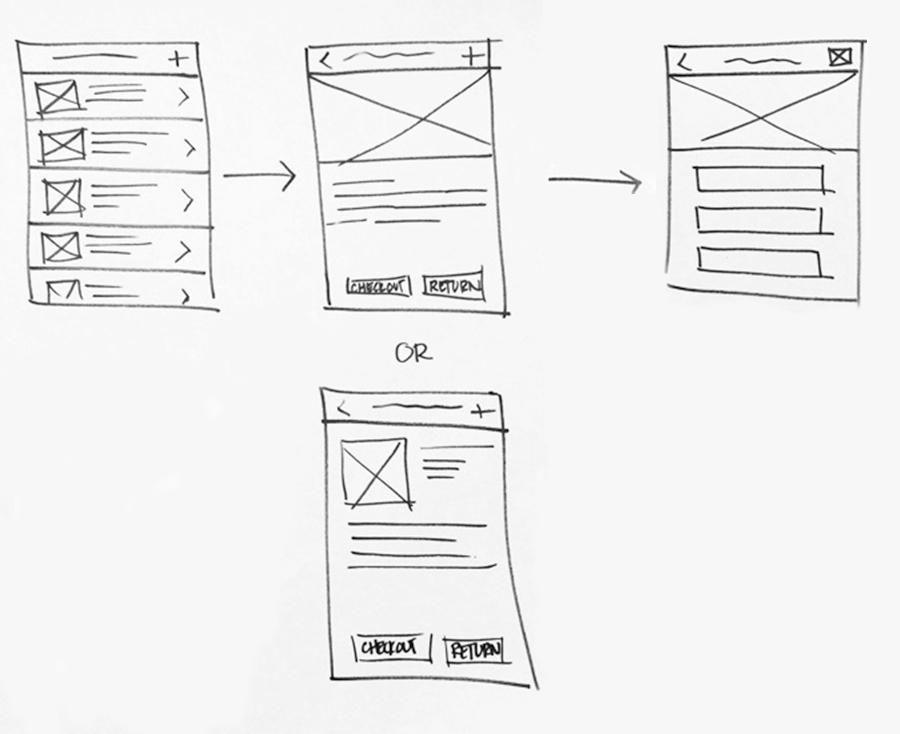 CHECKOUT RETURN
OR
CHECKOUT RETURN